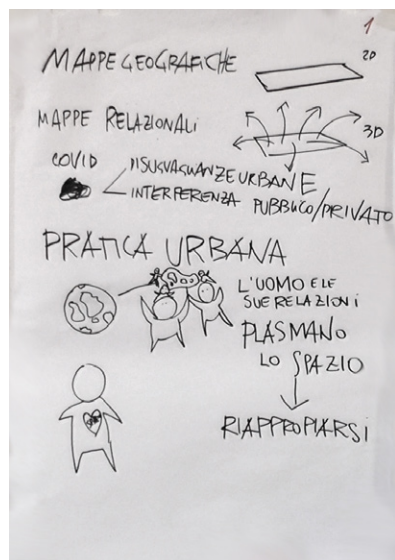 1
MAPPE GEOGRAFICHE
2D
MAPPE RELAZIONALI
3D
COVID
DISUGUAGLIANZE URBANE
INTERFERENZA PUBBLICO/PRIVATO
PRATICA URBANA
L'UOMO E LE
SUE RELAZIONI
PLASMANO
LO SPAZIO
RIAPPROPIARSI